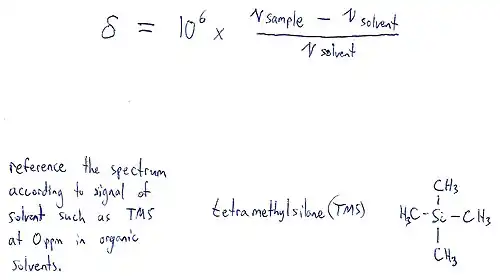 δ = 10⁶ × (ν sample − ν solvent) / ν solvent
reference the spectrum
according to signal of
solvent such as TMS
at 0ppm in organic
solvents.
tetramethylsilane (TMS)
CH₃
H₃C-Si-CH₃
CH₃